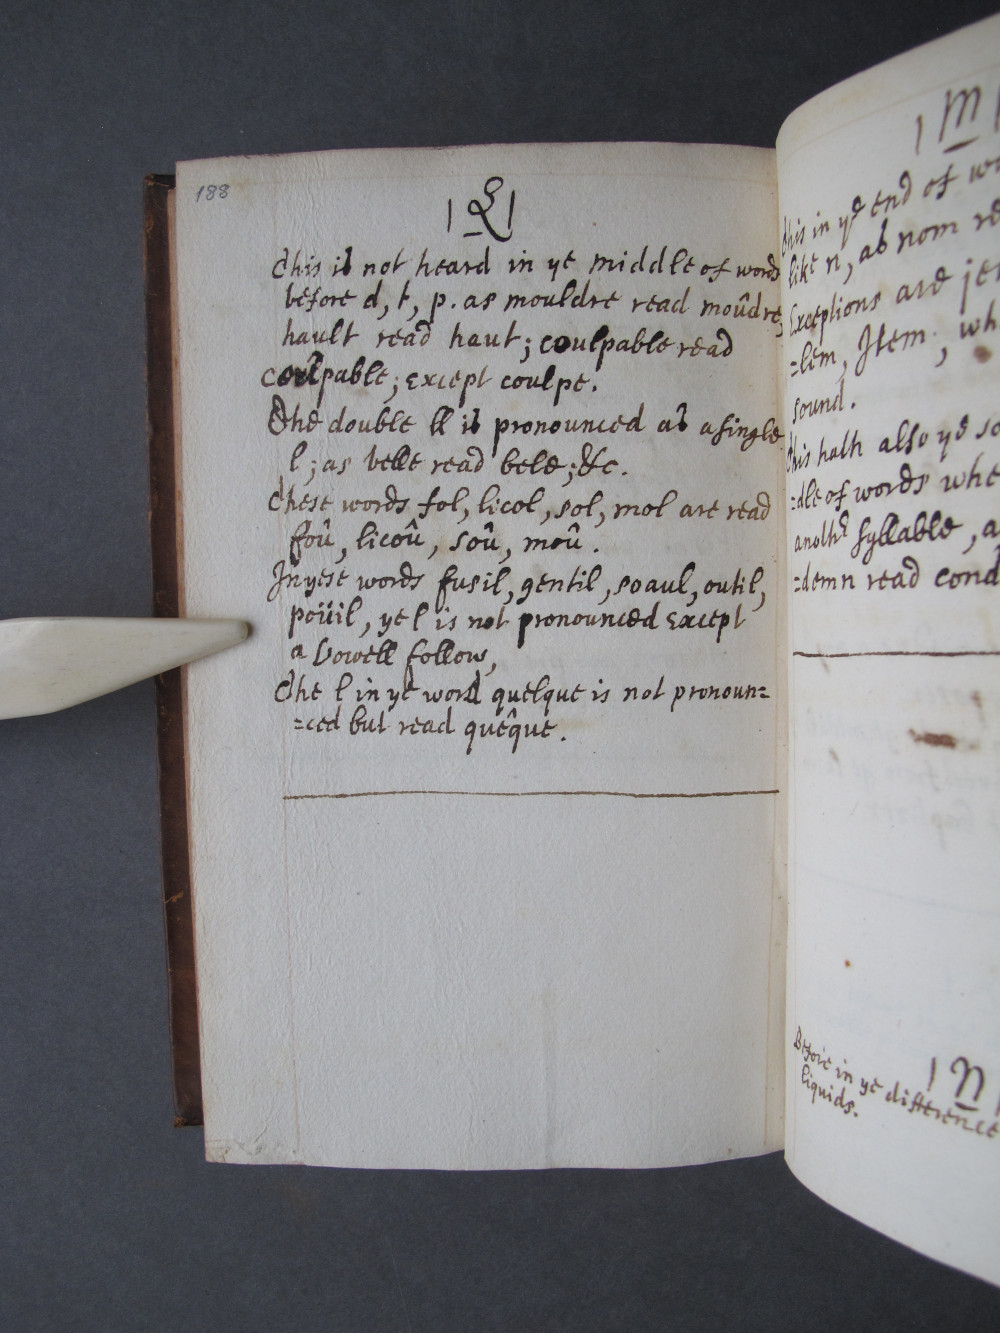 188
| L |
This is not heard in ye middle of words
before d, t, p. as mouldre read moûdre,
hault read haut; coulpable read
coupable; except coulpe.
The double ll is pronounced as a single
l; as belle read bele; &c.
These words fol, licol, sol, mol are read
foû, licoû, soû, moû.
In yese words fusil, gentil, soaul, outil,
poüil, ye l is not pronounced Except
a Vowell follow,
The l in ye word quelque is not pronoun=
=ced but read quêque.
| m |
This in ye end of
like n, as nom
Exceptions are
=lem, Item,
sound.
This hath also ye
=dle of words
anothr Syllable,
=demn read
| n |
Before in ye difference
liquids.